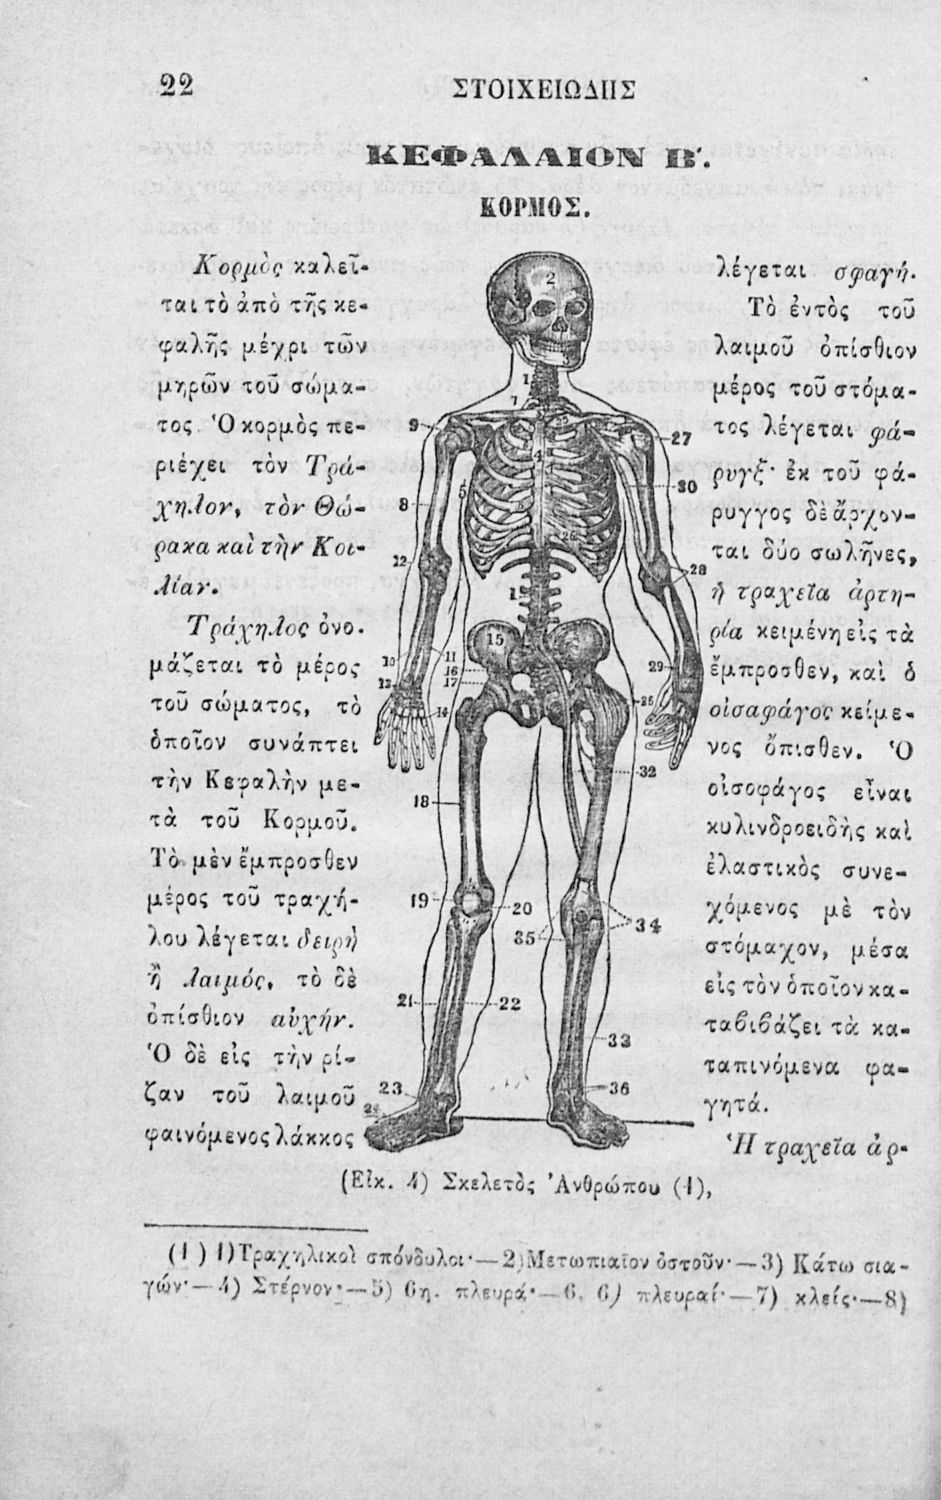 22
ΣΤΟΙΧΕΙΩΔΗΣ
ΚΕΦΑΛΑΙΟΝ Β΄.
ΚΟΡΜΟΣ.
Κορμὸς καλεῖ-
ται τὸ ἀπὸ τῆς κε-
φαλῆς μέχρι τῶν
μηρῶν τοῦ σώμα-
τος. Ὁ κορμὸς πε-
ριέχει τὸν Τρά-
χηλον, τὸν Θώ-
ρακα καὶ τὴν Κοι-
λίαν.
Τράχηλος ὀνο.
μάζεται τὸ μέρος
τοῦ σώματος, τὸ
ὁποῖον συνάπτει
τὴν Κεφαλὴν με-
τὰ τοῦ Κορμοῦ.
Τὸ μὲν ἔμπροσθεν
μέρος τοῦ τραχή-
λου λέγεται δειρὴ
ἢ λαιμός, τὸ δὲ
ὀπίσθιον αὐχήν.
Ὁ δὲ εἰς τὴν ρί-
ζαν τοῦ λαιμοῦ
φαινόμενος λάκκος
λέγεται σφαγή.
Τὸ ἐντὸς τοῦ
λαιμοῦ ὀπίσθιον
μέρος τοῦ στόμα-
τος λέγεται φά-
ρυγξ· ἐκ τοῦ φά-
ρυγγος δὲ ἄρχον-
ται δύο σωλῆνες,
ἡ τραχεῖα ἀρτη-
ρία κειμένη εἰς τὰ
ἔμπροσθεν, καὶ ὁ
οἰσαφάγος κείμε-
νος ὄπισθεν. Ὁ
οἰσοφάγος εἶναι
κυλινδροειδὴς καὶ
ἐλαστικὸς συνε-
χόμενος μὲ τὸν
στόμαχον, μέσα
εἰς τὸν ὁποῖον κα-
ταβιβάζει τὰ κα-
ταπινόμενα φα-
γητά.
Ἡ τραχεῖα ἀρ-
2
1
7
9
27
4
5
30
8
26
12
28
1
15
11
10
16
29
17
13
25
14
32
18
19
20
34
35
21
22
33
23
36
24
(Εἰκ. 4) Σκελετὸς Ἀνθρώπου (1),
(1) 1) Τραχηλικοὶ σπόνδυλοι·—2) Μετωπιαῖον ὀστοῦν·—3) Κάτω σια-
γών·—4) Στέρνον·—5) 6η. πλευρά·—6, 6) πλευραί·—7) κλείς·—8)